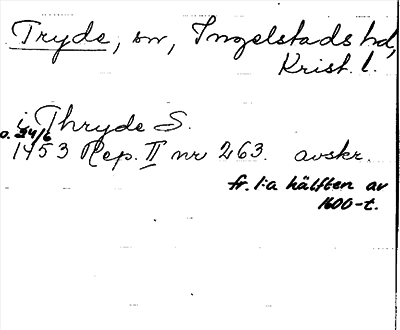 Tryde, sn, Ingelstads hd,
Krist. l.
i Thryde S.
o. 24/6
1453 Rep. II nr 263. avskr.
fr. 1:a hälften av
1600-t.